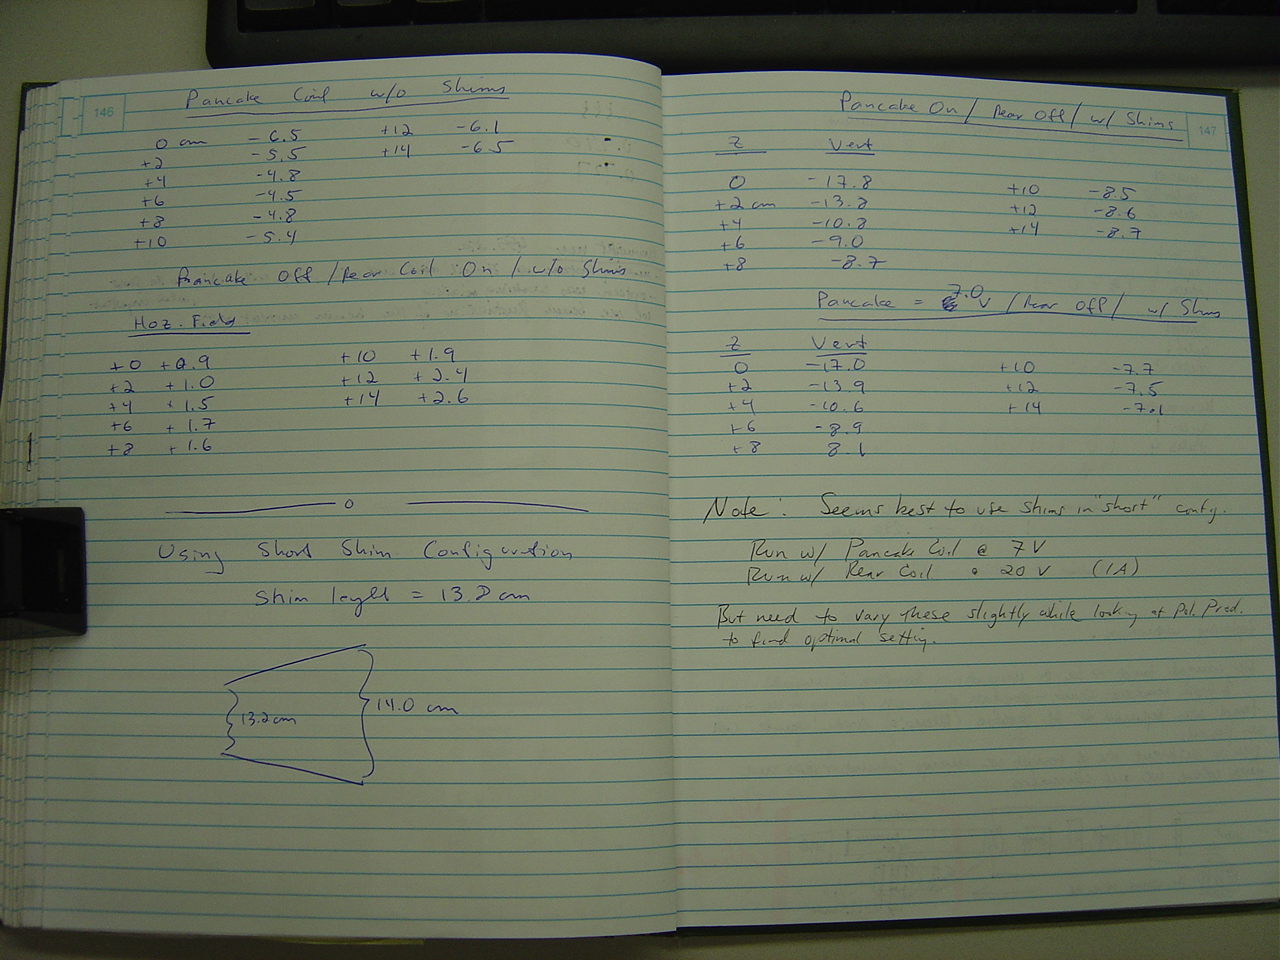 146
Pancake Coil w/o Shims
0 cm -6.5 +12 -6.1
+2 -5.5 +14 -6.5
+4 -4.8
+6 -4.5
+8 -4.8
+10 -5.4
Pancake Off / Rear Coil On / w/o Shims
Hoz. Field
+0 +0.9 +10 +1.9
+2 +1.0 +12 +2.4
+4 +1.5 +14 +2.6
+6 +1.7
+8 +1.6
0
Using Short Shim Configuration
Shim length = 13.8 cm
13.2cm
14.0 cm
147
Pancake On / Rear Off / w/ Shims
Z Vert
0 -17.8 +10 -8.5
+2 cm -13.8 +12 -8.6
+4 -10.8 +14 -8.7
+6 -9.0
+8 -8.7
Pancake = 7.0 v / Rear Off / w/ Shims
Z Vert
0 -17.0 +10 -7.7
+2 -13.9 +12 -7.5
+4 -10.6 +14 -7.1
+6 -8.9
+8 8.1
Note: Seems best to use shims in "short" config.
Run w/ Pancake Coil @ 7 V
Run w/ Rear Coil @ 20 V (1A)
But need to vary these slightly while looking at Pol. Prod.
to find optimal setting.